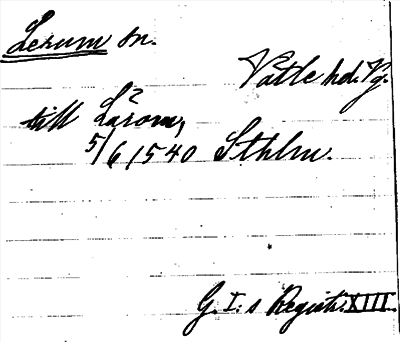 Lerum sn.
Vättle hd. Vg.
till Lärom,
5/6 1540 Sthlm.
G. I:s Registr. XIII.